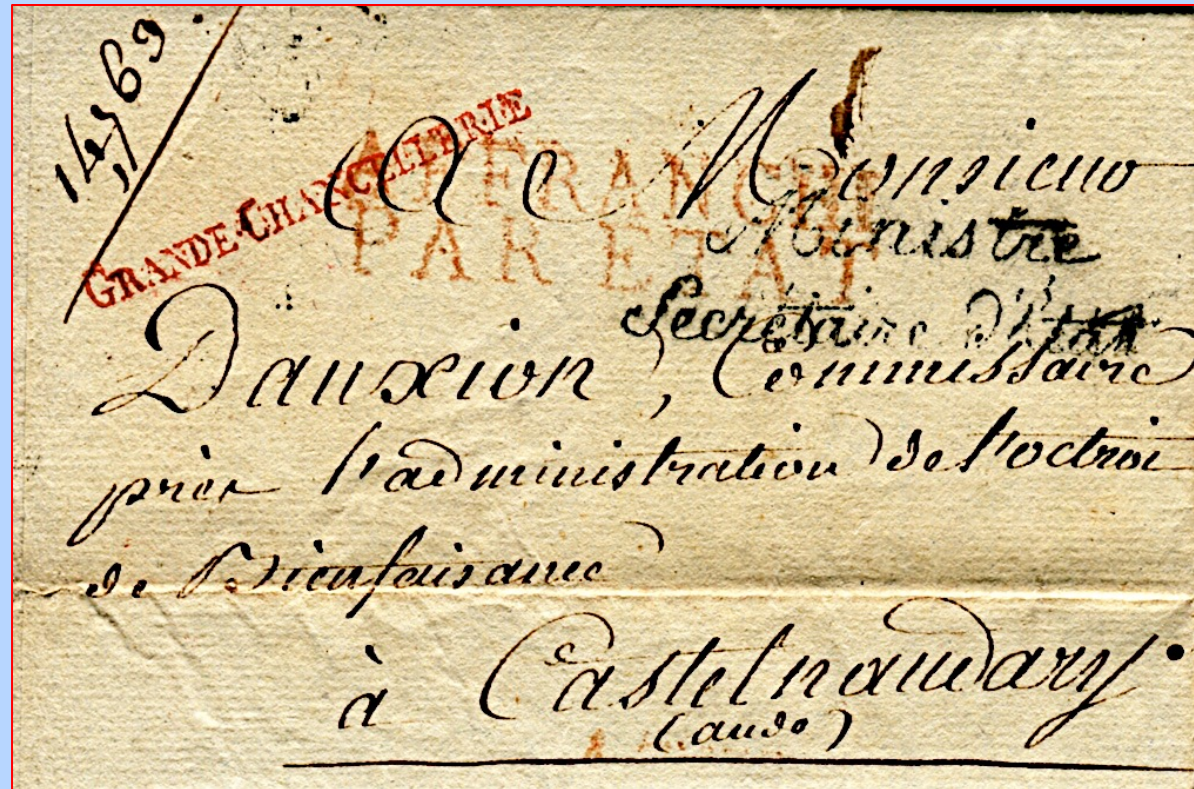 GRANDE-CHANCELLERIE
AFFRANCHI
PAR ETAT
A Monsieur
Ministre
Secrétaire d'Etat
Dauxion, Commissaire
près l'administration de l'octroi
de Bienfaisance
à Castelnaudary
(aude)